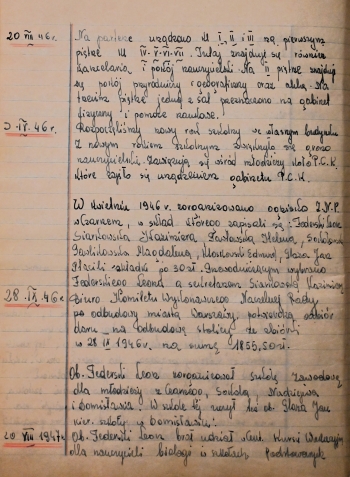 20 VIII 46 r. Na parterze urządzono kl. I, II i III na pierwszym
piętrze kl. IV-V-VI-VII. Tutaj znajduje się również
kancelaria i pokój nauczycielski. Na II piętrze znajdują
się pokój przyrodniczy i
trzecim piętrze jedną z sal przeznaczono na gabinet
fizyczny i pomoce naukowe.
2. IX. 46 r. Rozpoczęliśmy nowy rok szkolny we własnym budynku
Z nowym rokiem szkolnym grono
nauczycielskie. Zawiązują się wśród młodzieży koło P.C.K.
które zajęło się urządzeniem gabinetu P.C.K.
W kwietniu 1946 r. zorganizowano ognisko Z.N.P.
w Czarnem, w skład którego zapisali się: Federski Leon
Siankowska Kazimiera, Pawłowska Helena,
Pawlikowska Magdalena, Edmund, Jan
składki po 30 zł. Przewodniczącym wybrano
Federskiego Leona a sekretarzem Siankowską Kazimierę
28. IX. 46 r. Biuro Komitetu Wykonawczego Naczelnej Rady
po odbudowy miasta Warszawy, potwierdza odbiór
daru na odbudowę stolicy ze zbiórki
w 28 IX 1946 r. na sumę 1855,50 zł.
Ob. Federski Leon zorganizował szkołę zawodową
dla młodzieży z Czarnego,
i Domisławia. W szkole tej uczył też ob. Jan
kier. szkoły w Domisławiu.
20 VIII 1947 r. Ob. Federski Leon brał udział w Kursie Wakacyjnym
dla nauczycieli biologii w szkołach podstawowych